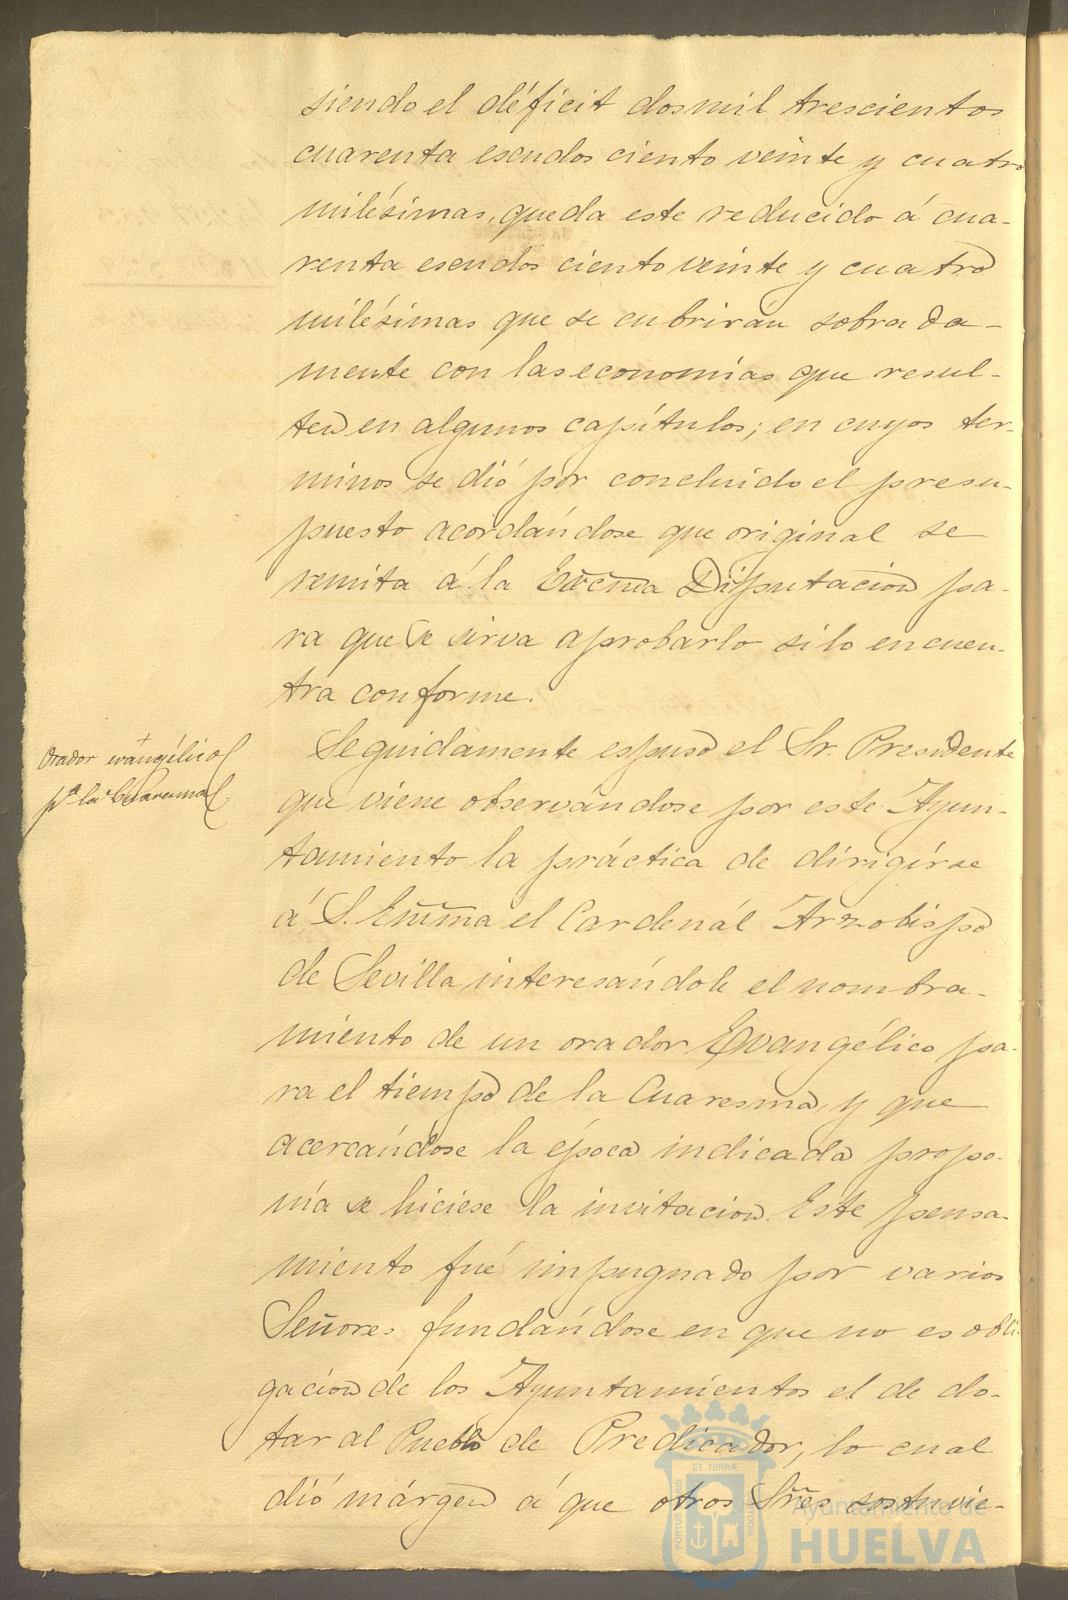 siendo el déficit dos mil trescientos
cuarenta escudos ciento veinte y cuatro
milésimas, queda este reducido á cua-
renta escudos ciento veinte y cuatro
milésimas que se cubriran sobrada-
mente con las economías que resul-
ten en algunos capítulos; en cuyos ter-
minos se dió por concluido el presu-
puesto acordándose que original se
remita á la Excma Diputacion pa-
ra que se sirva aprobarlo si lo encuen-
tra conforme.
Orador evangélico
pª la Cuaresma
Seguidamente espuso el Sr. Presidente
que viene observándose por este Ayun-
tamiento la práctica de dirigirse
á S. Emma el Cardenál Arzobispo
de Sevilla interesándole el nombra-
miento de un orador Evangélico pa-
ra el tiempo de la Cuaresma, y que
acercándose la época indicada propo-
nía se hiciese la invitacion. Este pensa-
miento fué impugnado por varios
Señores fundándose en que no es obli-
gacion de los Ayuntamientos el de do-
tar al Pueblo de Predicador, lo cual
dió márgen á que otros Sres sostuvie-
ET TERRÆ
PORTUS MARIS
CUSTODIA
Ayuntamiento de
HUELVA